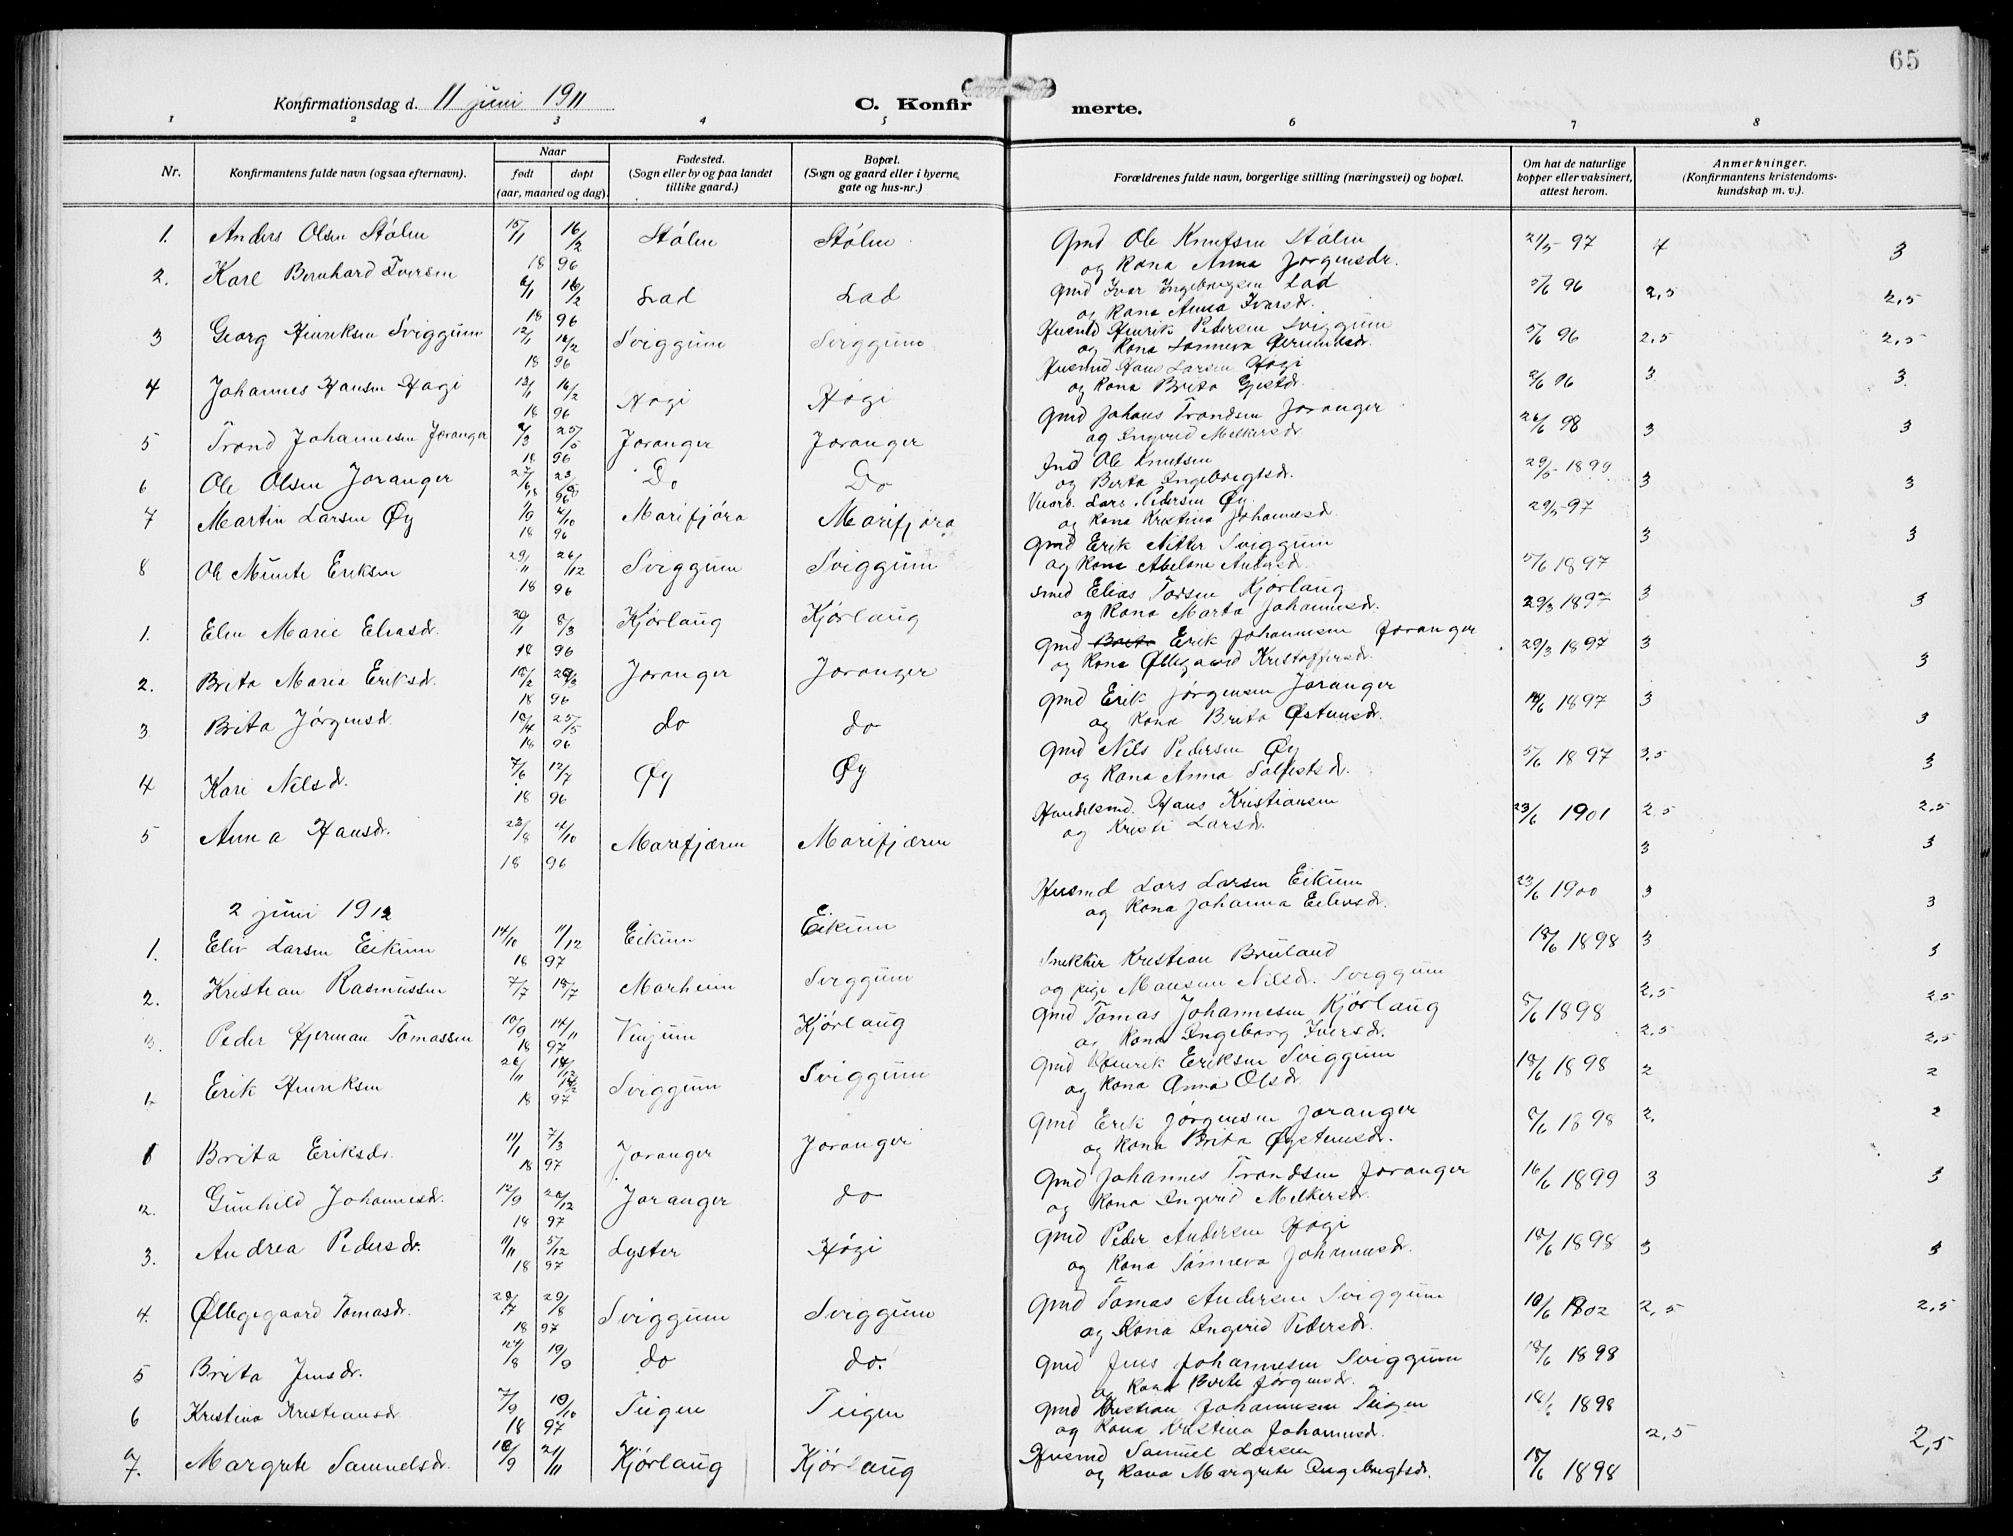 65
Konfirmationsdag d. 11 juni 1911
C. Konfirmerte.
1 2 3 4 5 6 7 8
Nr.
Konfirmantens fulde navn (ogsaa efternavn).
Naar
født døpt
(aar, maaned og dag).
Fødested.
(Sogn eller by og paa landet
tillike gaard.)
Bopæl.
(Sogn og gaard eller i byerne,
gate og hus-nr.)
Forældrenes fulde navn, borgerlige stilling (næringsvei) og bopæl.
Om hat de naturlige
kopper eller vaksinert,
attest herom.
Anmerkninger.
(Konfirmantens kristendoms-
kundskap m. v.).
1. Anders Olsen Stølen 15/1 16/2 18 96 Stølen Stølen Gmd Ole Knutsen Stølen
og Kona Anna Jørgensdr. 21/5 97 4 3
2. Karl Bernhard Iversen 6/1 16/2 18 96 Lad Lad Gmd Ivar Ingebrigtsen Lad
og Kona Anna Iversdr. 5/6 96 2,5 2,5
3 Georg Henriksen Sviggum 12/1 16/2 18 96 Sviggum Sviggum Husmd Henrik Pedersen Sviggum
og Kona Sønneva 5/6 96 2,5 2,5
4 Johannes Hansen Høgi 13/1 16/2 18 96 Høgi Høgi Husmd Hans Larsen Høgi
og Kona Brita 2/6 96 3 3.
5 Trond Johannesen Joranger 9/3 25/5 18 96 Joranger Joranger Gmd Johans Trondsen Joranger
og Ingerid Melkersdr. 26/6 98 3 3
6 Ole Olsen Joranger 27/6 23/8 18 96 Do Do Ind Ole Knutsen
og Berta Ingebrigtsdr. 29/5 1899 3 3
7 Martin Larsen Øy 1/9 4/10 18 96 Marifjøra Marifjøra Lars Pedersen Øy
og Kona Kristina Johannesd. 29/5 97 3 3
8 Ole Munte Eriksen 29/11 26/12 18 96 Sviggum Sviggum Gmd Erik Nitter Sviggum
og Kona Abelone Andersd. 5/6 1897
1. Elen Marie Eliasdr. 20/1 8/3 18 96 Kjørlaug Kjørlaug Smed Elias Torsen Kjørlaug
og Kona Marta Johannesdr. 29/3 1897 3 3
2. Brita Maria Eriksdr. 15/2 29/3 18 96 Joranger Joranger Gmd Erik Johannesen Joranger
og Kona Øllegaard Kristofersdr. 29/3 1897 3 3
3 Brita Jørgensdr. 10/4 25/5 18 96 do do Gmd Erik Jørgensen Joranger
og Kona Brita Østensdr. 14/6 1897 3 3
4 Kari Nilsdr. 7/6 12/7 18 96 Øy Øy Gmd Nils Pedersen Øy
og Kona Anna Solfestsdr. 5/6 1897 3,5 3
5 Anna Hansdr. 23/8 4/10 18 96 Marifjæren Marifjæren Handelsmd. Hans Kristiansen
og Kristi Larsdr. 23/6 1901 2,5 2,5
3 3
2 juni 1912
1. Eliv Larsen Eikum 14/10 11/12 18 97 Eikum Eikum Husmd Lars Larsen Eikum
og Kona Johanna Eilevsdr. 23/6 1900 3 3
2. Kristian Rasmussen 7/7 18/7 Marheim Sviggum Snekker Kristian Bruland
og pige Mansen Nilsdr. Sviggum 18/6 1898 3 3
3. Peder Hjerman Tomassen 10/9 14/11 18 97 Vinjum Kjørlaug Gmd Tomas Johannesen Kjørlaug
og Kona Ingeborg Iversdr. 5/6 1898 2,5 2,5
4 Erik Henriksen 26/11 14/12 18 97 Sviggum Sviggum Gmd Henrik Eriksen Sviggum
og Kona Anna Olsdr. 18/6 1898 2 2
1 Brita Eriksdr. 11/1 7/3 18 97 Joranger Joranger Gmd Erik Jørgensen Joranger
og Kona Brita Øystensdr. 5/6 1898 2. 2
2. Gunhild Johannesdr. 12/9 26/12 18 97 Joranger do Gmd Johannes Trondsen Joranger
og Kona Ingerid Melkersdr. 16/6 1899 3 3
3. Andrea Pedersdr. 11/11 5/12 18 97 Lyster Høgi Gmd Peder Andersen Høgi
og Kona Sønneva Johannesdr. 18/6 1898 3 3
4. Øllegegaard Tomasdr. 29/8 18 97 Sviggum Sviggum Gmd Tomas Andersen Sviggum
og Kona Ingerid Pedersdr. 10/6 1902 2,5 2,5
5 Brita Jensdr. 24/8 19/9 do do. Gmd Jens Johannesen Sviggum
og Kona Brita Jørgensdr. 18/6 1898
6 Kristina Kristiansdr 7/9 10/10 18 97 Teigen Teigen Gmd Kristian Johannesen Teigen
og Kona Kristina Johannesdr. 18/6 1898 2,5 2,5
7. Margrete Samuelsdr. 10/9 2/11 Kjørlaug Kjørlaug Husmd Samuel Larsen
og Kona Margrete Ingebrigtsdr. 18/6 1898